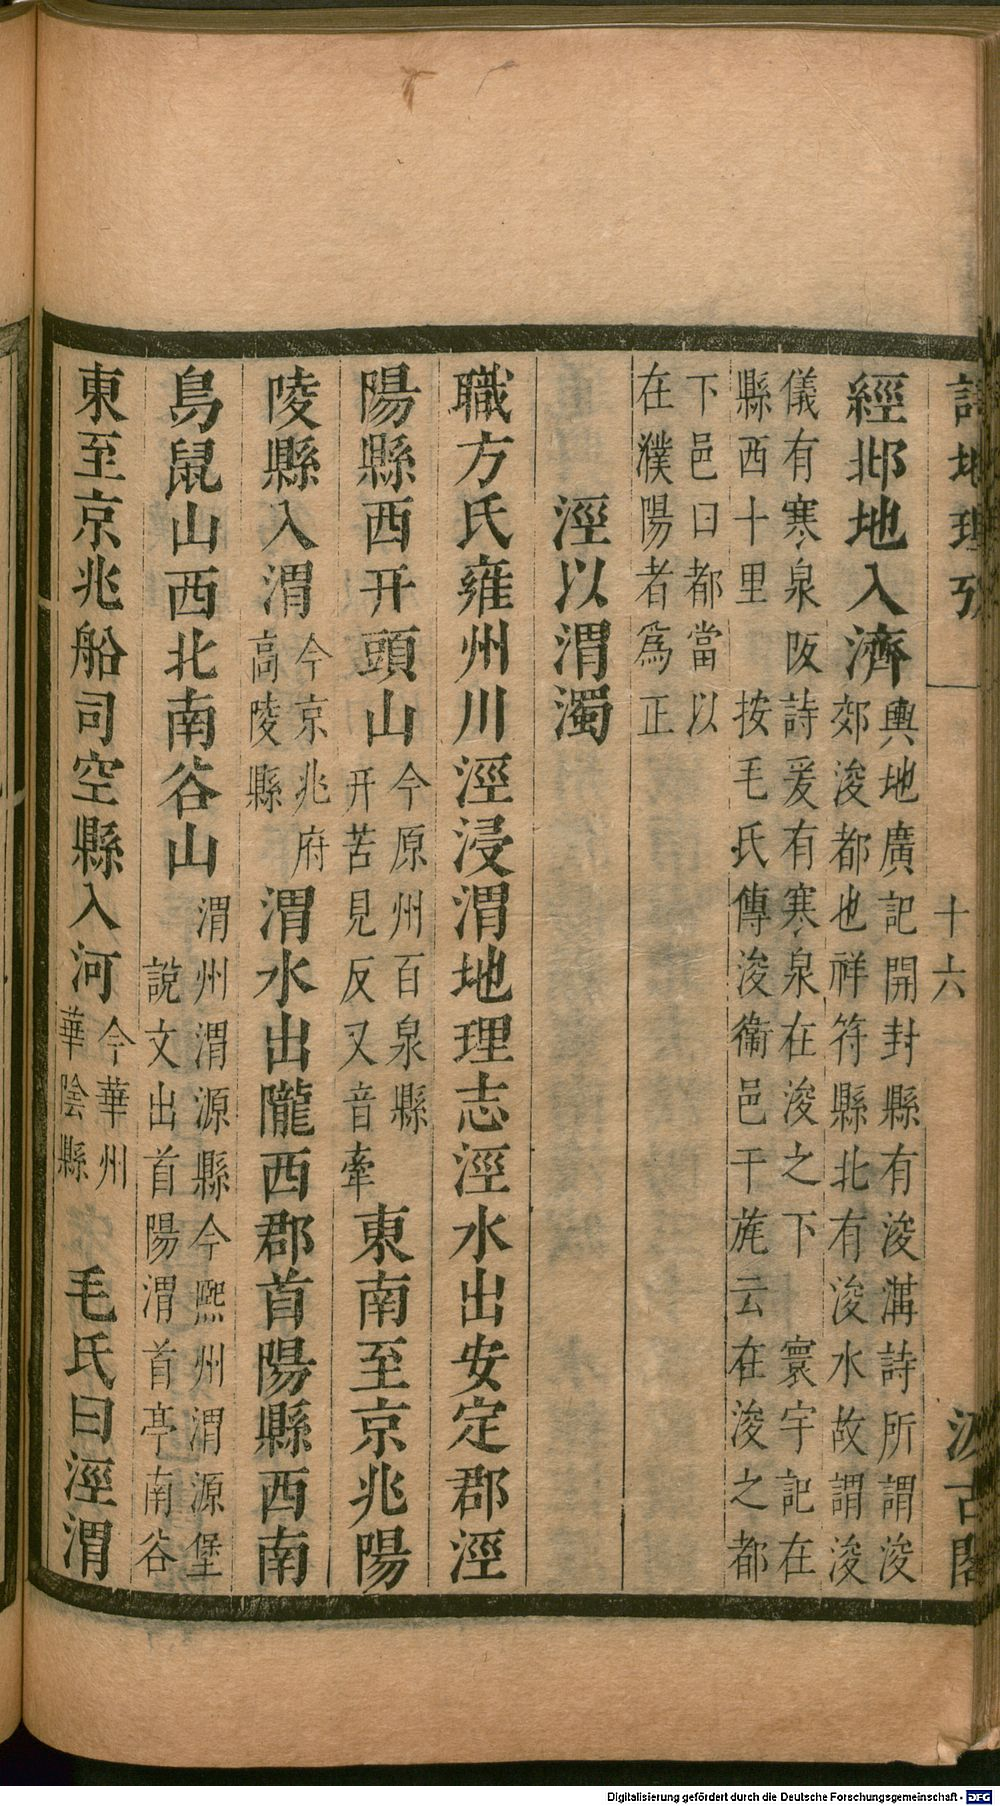 詩地理攷
十六
汲古閣
經邶地入濟
輿地廣記開封縣有浚溝詩所謂浚
郊浚都也祥符縣北有浚水故謂浚
儀有寒泉阪詩爰有寒泉在浚之下 寰宇記在
縣西十里 按毛氏傳浚衞邑干旄云在浚之都
下邑曰都當以
在濮陽者爲正
涇以渭濁
職方氏雍州川涇浸渭地理志涇水出安定郡涇
陽縣西幵頭山
今原州百泉縣
幵苦見反又音牽
東南至京兆陽
陵縣入渭
今京兆府
高陵縣
渭水出隴西郡首陽縣西南
鳥鼠山西北南谷山
渭州渭源縣今熈州渭源堡
說文出首陽渭首亭南谷
東至京兆船司空縣入河
今華州
華陰縣
毛氏曰涇渭
Digitalisierung gefördert durch die Deutsche Forschungsgemeinschaft - DFG